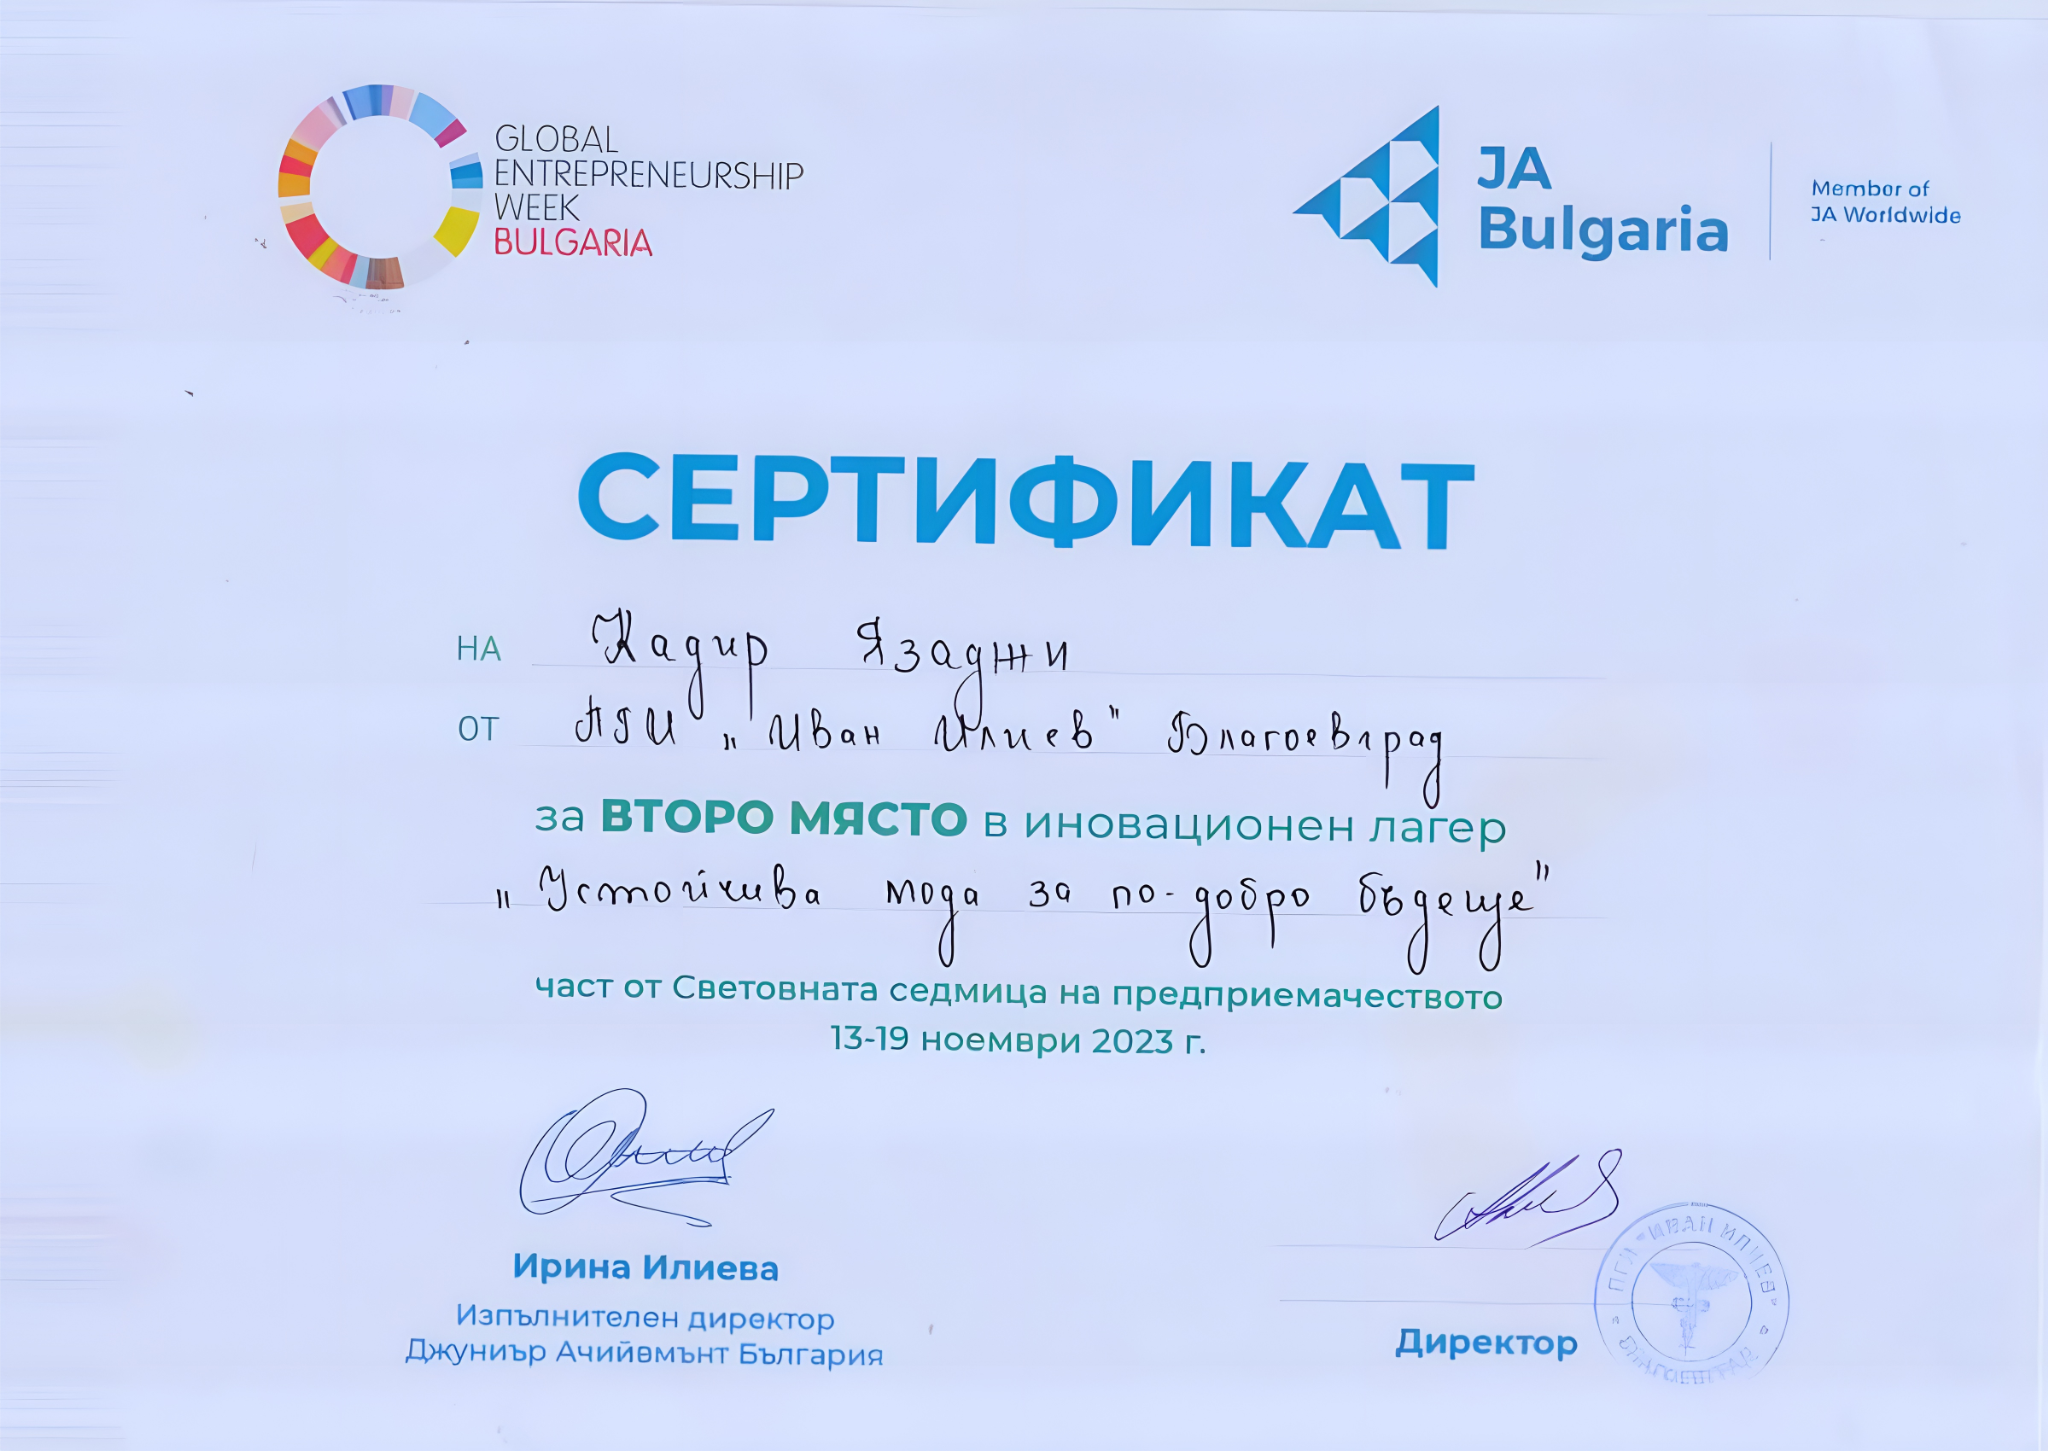 GLOBAL
ENTREPRENEURSHIP
WEEK
BULGARIA
JA
Bulgaria
Member of
JA Worldwide
СЕРТИФИКАТ
НА Кадир Язаджи
ОТ ПГИ „Иван Илиев" Благоевград
за ВТОРО МЯСТО в иновационен лагер
„Устойчива мода за по-добро бъдеще"
част от Световната седмица на предприемачеството
13-19 ноември 2023 г.
Ирина Илиева
Изпълнителен директор
Джуниър Ачийвмънт България
Директор
ИВАН ИЛИЕВ
БЛАГОЕВГРАД